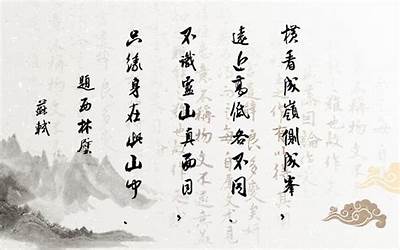 橫看成嶺側成峯，
遠近高低各不同．
不識廬山真面目，
只緣身在此山中．
題西林壁
蘇軾